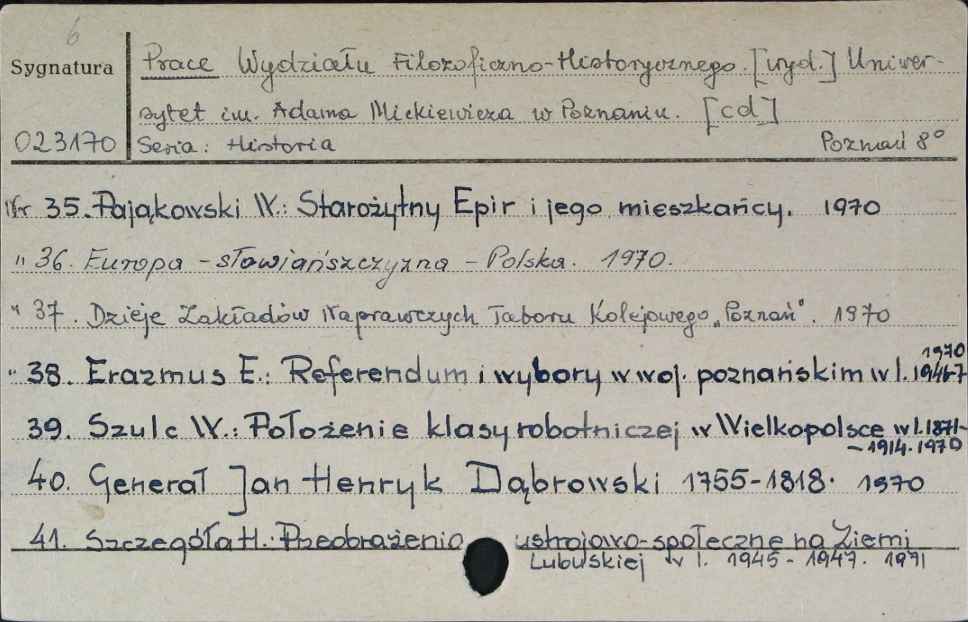 6
Sygnatura
023170
Prace Wydziału Filozoficzno-Historycznego. [wyd.] Uniwer-
sytet im. Adama Mickiewicza w Poznaniu. [cd]
Seria: Historia Poznań 8°
Nr 35. Pająkowski W.: Starożytny Epir i jego mieszkańcy. 1970
" 36. Europa - słowiańszczyzna - Polska. 1970.
" 37. Dzieje Zakładów Naprawczych Taboru Kolejowego „Poznań". 1970
" 38. Erazmus E.: Referendum i wybory w woj. poznańskim w l. 1946-7 1970
39. Szulc W.: Położenie klasy robotniczej w Wielkopolsce w l. 1871-
- 1914. 1970
40. Generał Jan Henryk Dąbrowski 1755-1818. 1970
41. Szczegóła H.: Przeobrażenia ustrojowo-społeczne na Ziemi
Lubuskiej w l. 1945-1947. 1971